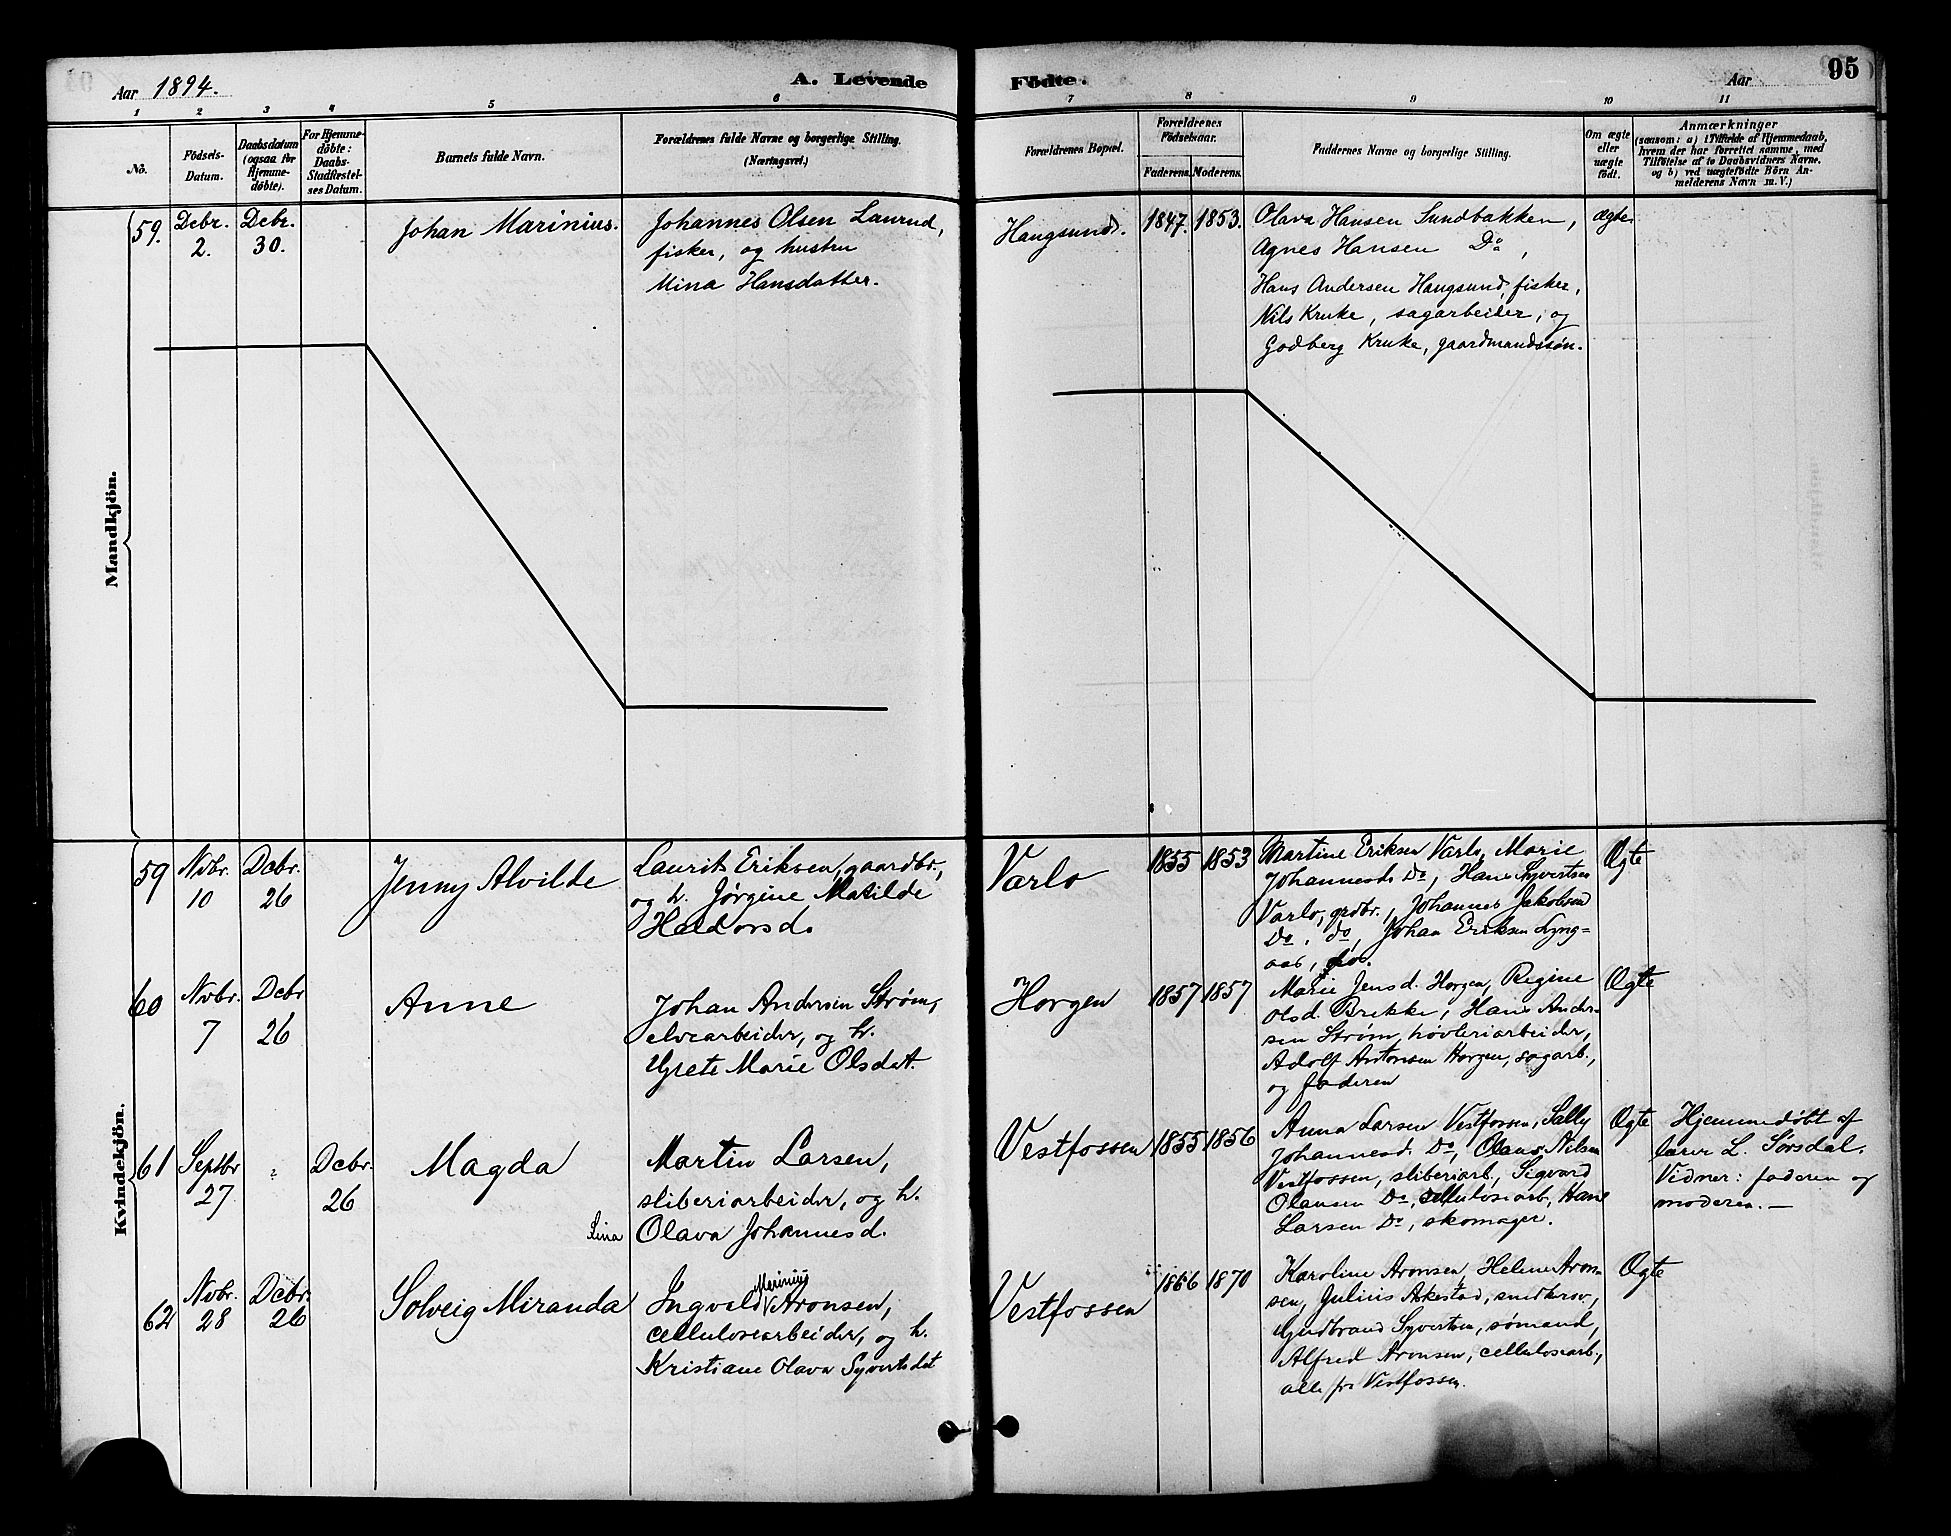 Aar 1894.
A. Levende
Födte.
Aar
95
1 2 3 4 5 6 7 8 9 10 11
No.
Födsels-
Datum.
Daabsdatum
(ogsaa for
Hjemme-
döbte).
For Hjemme-
döbte:
Daabs-
Stadfæstel-
ses Datum.
Barnets fulde Navn.
Forældrenes fulde Navne og borgerlige Stilling.
(Næringsvei.)
Forældrenes Bopæl.
Forældrenes
Födselsaar.
Faderens. Moderens.
Faddernes Navne og borgerlige Stilling.
Om ægte
eller
uægte
födt.
Anmærkninger
(saasom: a) i Tilfælde af Hjemmedaab,
hvem der har forrettet samme, med
Tilföielse af to Daabsvidners Navne.
og b) ved uægtefödte Börn An-
melderens Navn m. V.)
Mandkjön.
59.
Debr.
2.
Debr.
30.
Johan Marinius.
Johannes Olsen Laurud,
fisker, og hustru
Mina Hansdatter.
Haugsund.
1847. 1853.
Olava Hansen Sundbakken,
Agnes Hansen Do,
Hans Andersen Haugsund, fisker,
Nils Kruke, sagarbeider, og
Godberg Kruke, gaardmandssøn.
ægte
Kvindekjön.
59
Nvbr.
10
Dcbr.
26
Jenny Alvilde
Laurits Eriksen, gaardbr.,
og h. Jørgine Matilde
Heldorsd.
Varlo
1855 1853
Martine Eriksen Varlo, Marie
Johannesd. Do, Hans Syvertsen
Varlo, grdbr., Johannes Jakobsen
Do, do, Johan Eriksen Lyng-
aas, do.
Ægte
60
Nvbr.
7
Dcbr
26
Anne
Johan Andersen Strøm,
elvearbeider, og h.
Grete Marie Olsdat.
Horgen
1857 1857
Marie Jensd. Horgen, Regine
Olsd. Brekke, Hans Ander-
sen Strøm, høvleriarbeider,
Adolf Antonsen Horgen, sagarb.,
og faderen
Ægte
61
Septbr
27.
"
Dcbr.
26
Magda
Martin Larsen,
sliberiarbeider, og h.
Lina Olava Johannesd.
Vestfossen
1855 1856
Anna Larsen Vestfossen, Sally
Johannesd. Do, Olaus Nilsen
Vestfossen, sliberiarb., Sigvard
Olausen Do, cellulosearb., Hans
Larsen Do, skomager.
Ægte
Hjemmedøbt af
lærer L. Sørsdal.
Vidner: faderen og
moderen. —
62
Nvbr.
28
Dcbr.
26
Solveig Miranda
Ingvald Marinius Aronsen,
cellulosearbeider, og h.
Kristiane Olava Syvertsdat
Vestfossen
1866 1870
Karoline Aronsen, Helene Aron-
sen, Julius Askestad,
Gudbrand Syvertsen, sømand,
Alfred Aronsen, cellulosearb.,
alle fr Vestfossen.
Ægte